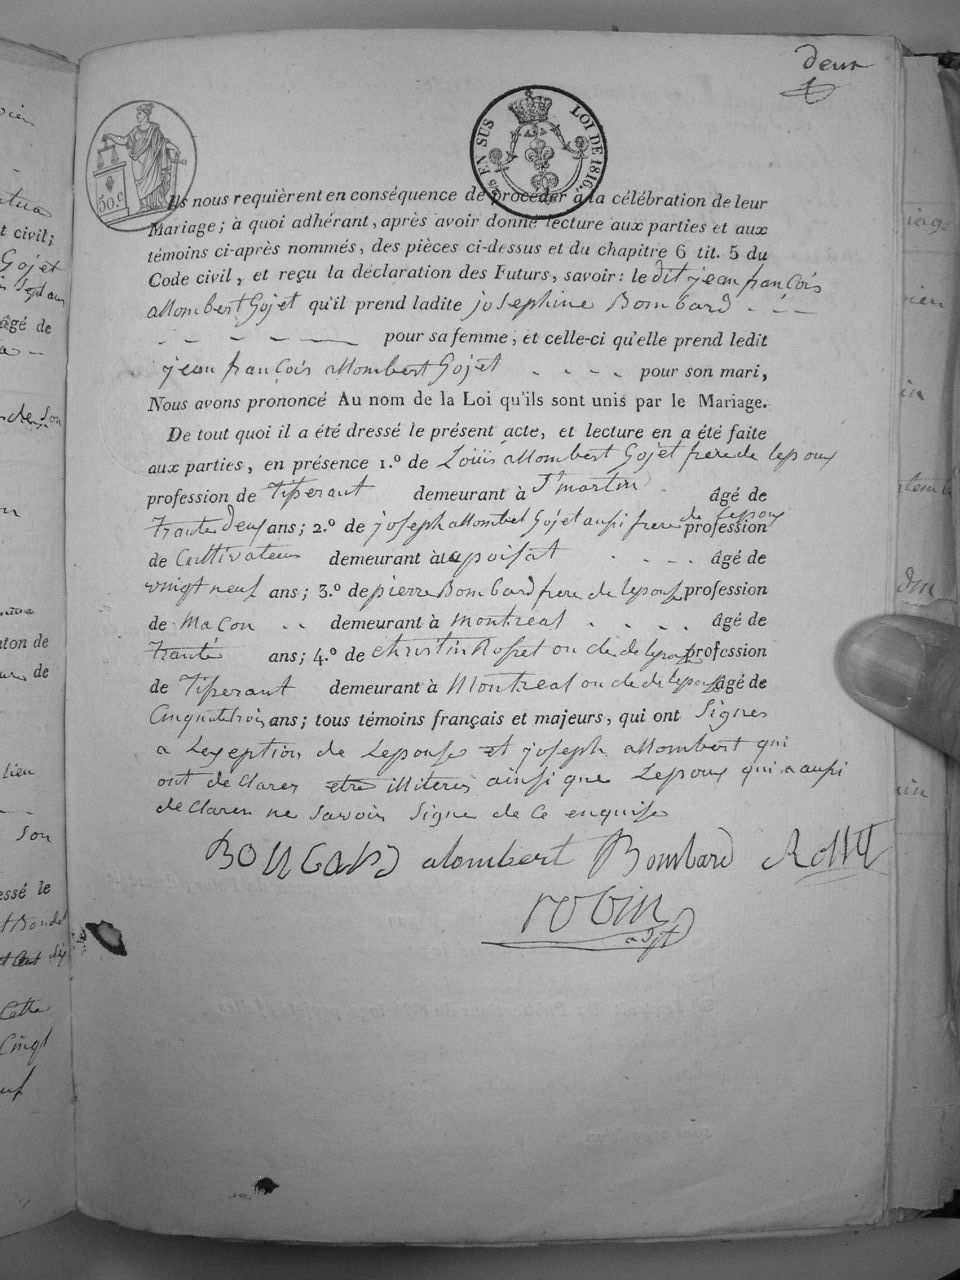 deux
50.c
25 EN SUS LOI DE 1816.
Ils nous requièrent en conséquence de procéder à la célébration de leur
Mariage; à quoi adhérant, après avoir donné lecture aux parties et aux
témoins ci-après nommés, des pièces ci-dessus et du chapitre 6 tit. 5 du
Code civil, et reçu la déclaration des Futurs, savoir: le dit jean françois
allombert Gojet qu'il prend ladite josephine Bombard
pour sa femme, et celle-ci qu'elle prend ledit
jean françois allombert Gojet pour son mari,
Nous avons prononcé Au nom de la Loi qu'ils sont unis par le Mariage.
De tout quoi il a été dressé le présent acte, et lecture en a été faite
aux parties, en présence 1.º de Louis allombert Gojet frere de lepoux
profession de Tiserant demeurant à St martin âgé de
trante deux ans; 2.º de joseph allombert Gojet aussi frere de lepoux profession
de Cultivateur demeurant à âgé de
vingt neuf ans; 3.º de pierre Bombard frere de lepouse profession
de Macon demeurant à montreal âgé de
trante ans; 4.º de Christin Rosset oncle de lepouse profession
de Tiserant demeurant à Montreal oncle de lepouse âgé de
Cinquante trois ans; tous témoins français et majeurs, qui ont Signes
a Lexeption de Lepouse et joseph allombert qui
ont declares etre illiteres ainsi que Lepoux qui a aussi
declarer ne savoir signe de ce enquise
alombert Bombard Rosset
robin
adjt